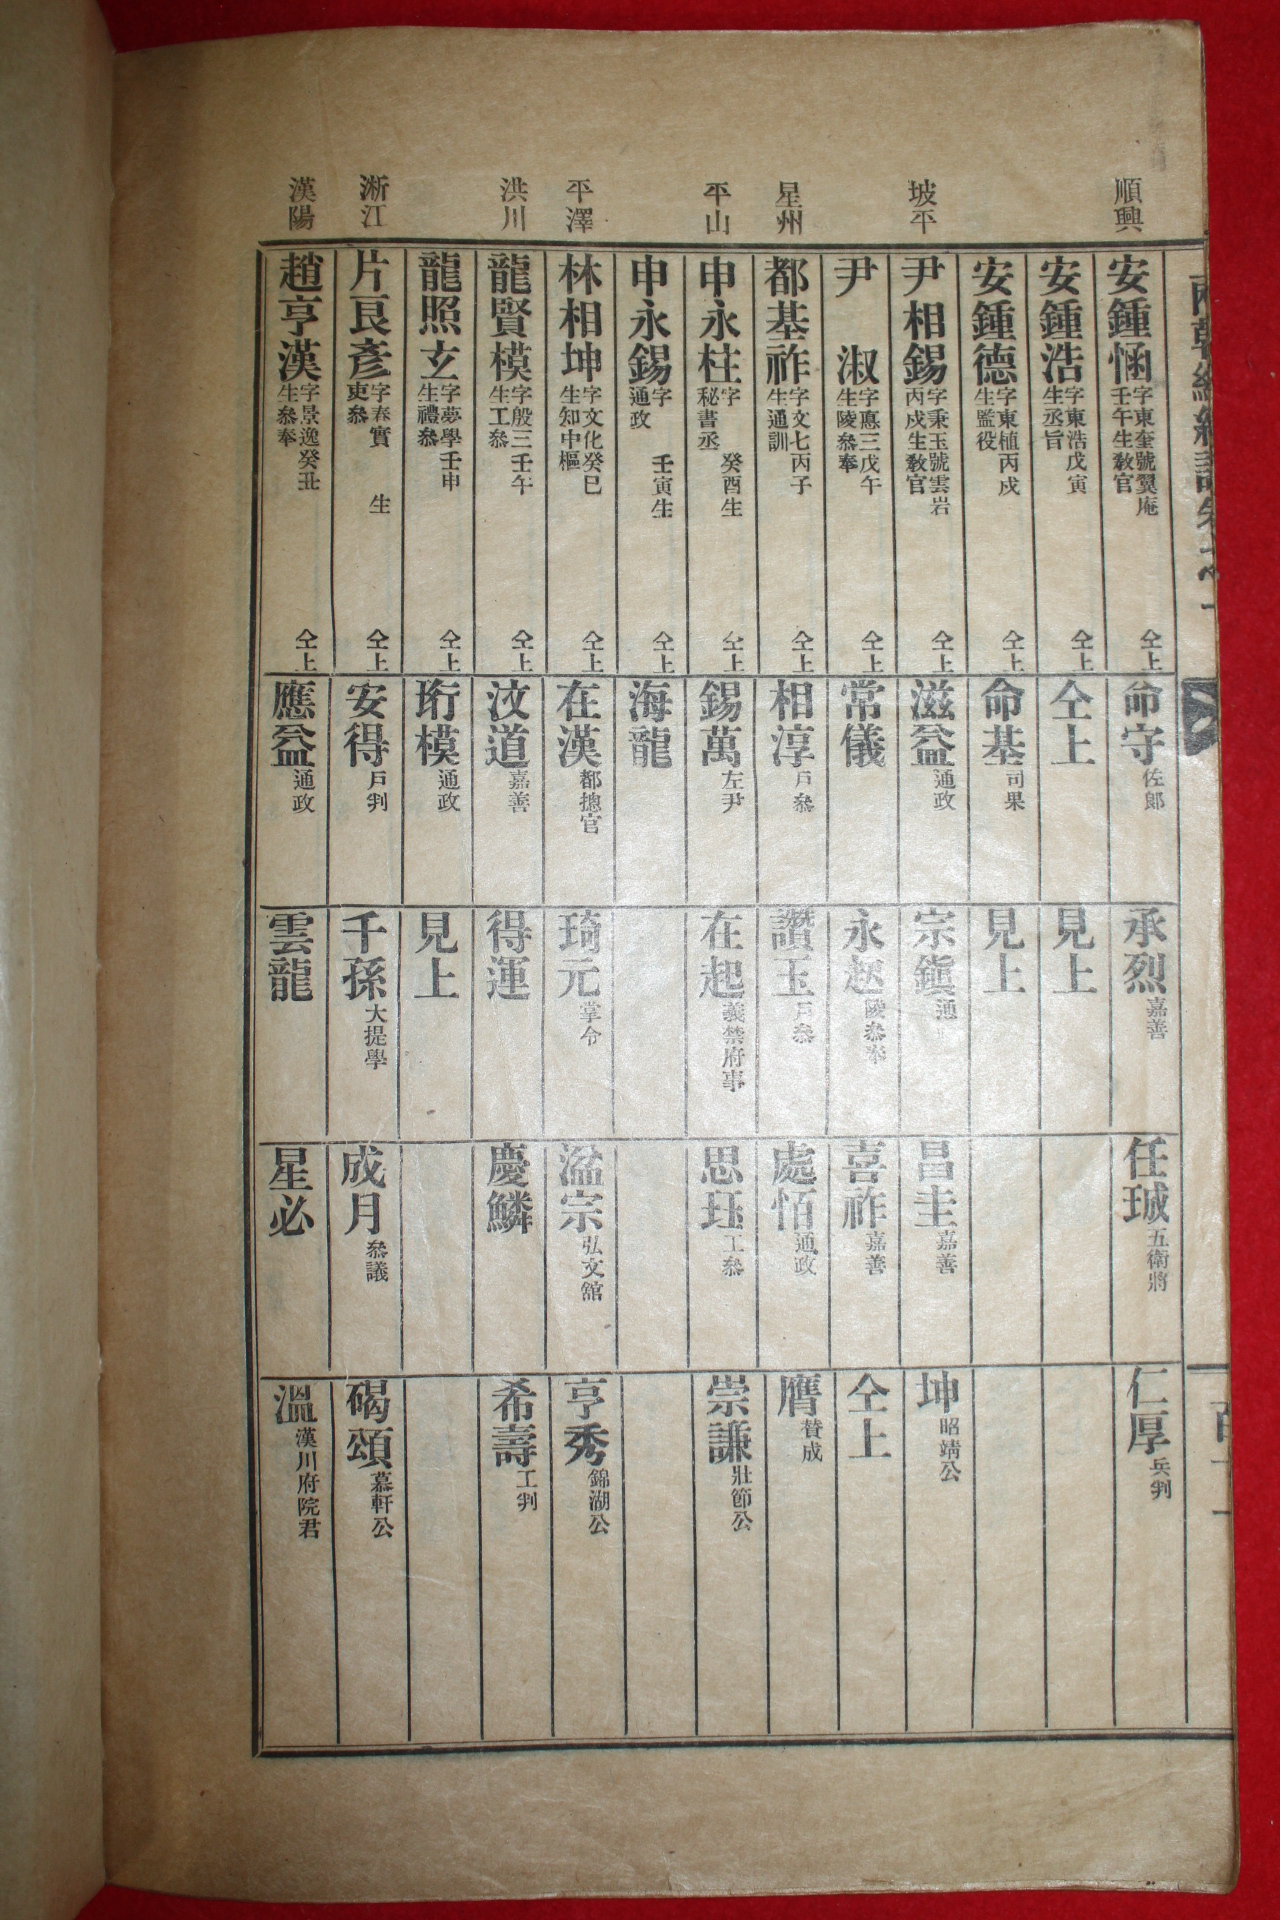 順興
安鍾㴠 字東奎號翼庵壬午生教官 仝上
命守 佐郞
承烈 嘉善
任珹 五衛將
仁厚 兵判
安鍾浩 字東浩戊寅生丞旨 仝上
仝上
見上
安鍾德 字東植丙戍生監役 仝上
命基 司果
見上
坡平
尹相錫 字秉玉號雲岩丙戍生教官 仝上
滋益 通政
宗鎭 通
昌圭 嘉善
坤 昭靖公
尹淑 字惪三戊午生陵叅奉 仝上
常儀
永赵 陵叅奉
喜祚 嘉善
仝上
星州
都基祚 字文七丙子生通訓 仝上
相淳 戶叅
讚玉 戶叅
處恒 通政
膺 贊成
平山
申永柱 字 癸酉生秘書丞 仝上
錫萬 左尹
在起 義禁府事
思珏 工叅
崇謙 壯節公
申永錫 字 壬寅生通政 仝上
海龍
平澤
林相坤 字文化癸巳生知中樞 仝上
在漢 都摠官
琦元 掌令
溢宗 弘文舘
亨秀 錦湖公
洪川
龍賢模 字殷三壬午生工叅 仝上
汶道 嘉善
得運
慶鱗
希壽 工判
龍照玄 字夢學壬申生禮叅 仝上
珩模 通政
見上
淅江
片良彥 字春實 生吏叅 仝上
安得 戶判
千孫 大提學
成月 叅議
碣頌 慕軒公
漢陽
趙亨漢 字景逸癸丑生叅奉 仝上
應益 通政
雲龍
星必
溫 漢川府院君